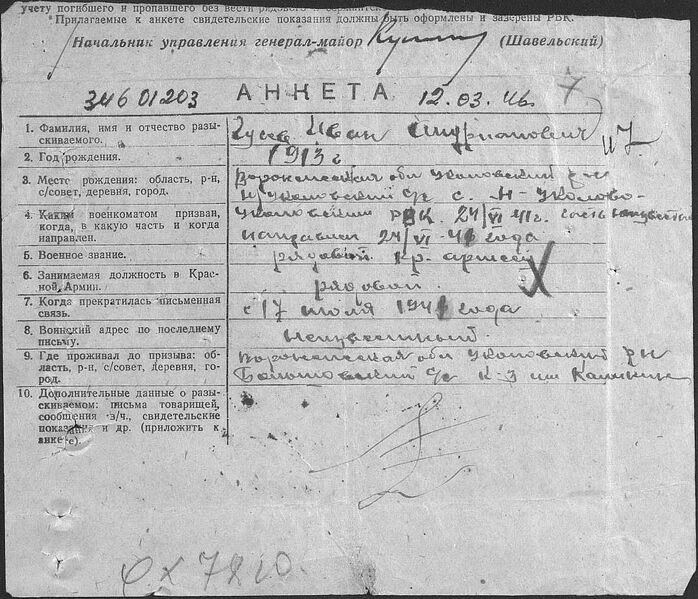 учету погибшего и пропавшего без вести рядового
*Прилагаемые к анкете свидетельские показания должны быть оформлены и заверены РВК.
Начальник управления генерал-майор (Шавельский)
34601203 АНКЕТА 12.03.46 7
1. Фамилия, имя и отчество разы-
скиваемого.
Гусев Иван Андрианович
2. Год рождения.
1913 г
3. Место рождения: область, р-н,
с/совет, деревня, город.
Воронежская обл Уколовский р-н
с/с с. Н-Уколово
4. Каким военкоматом призван,
когда, в какую часть и когда
направлен.
Уколовским РВК. 24/VI 41г. часть неизвестна
направлен 24/VI-41 года
5. Военное звание.
рядовой кр. армеец
6. Занимаемая должность в Крас-
ной Армии.
рядовой.
7. Когда прекратилась письменная
связь.
с 17 июля 1941 года
8. Воинский адрес по последнему
письму.
Неизвестный.
9. Где проживал до призыва: об-
ласть, р-н, с/совет, деревня, го-
род.
Воронежская обл Уколовский р-н
с/с к-з им Калинина
10. Дополнительные данные о разы-
скиваемом: письма товарищей,
сообщения в/ч., свидетельские
показания и др. (приложить к
анкете).